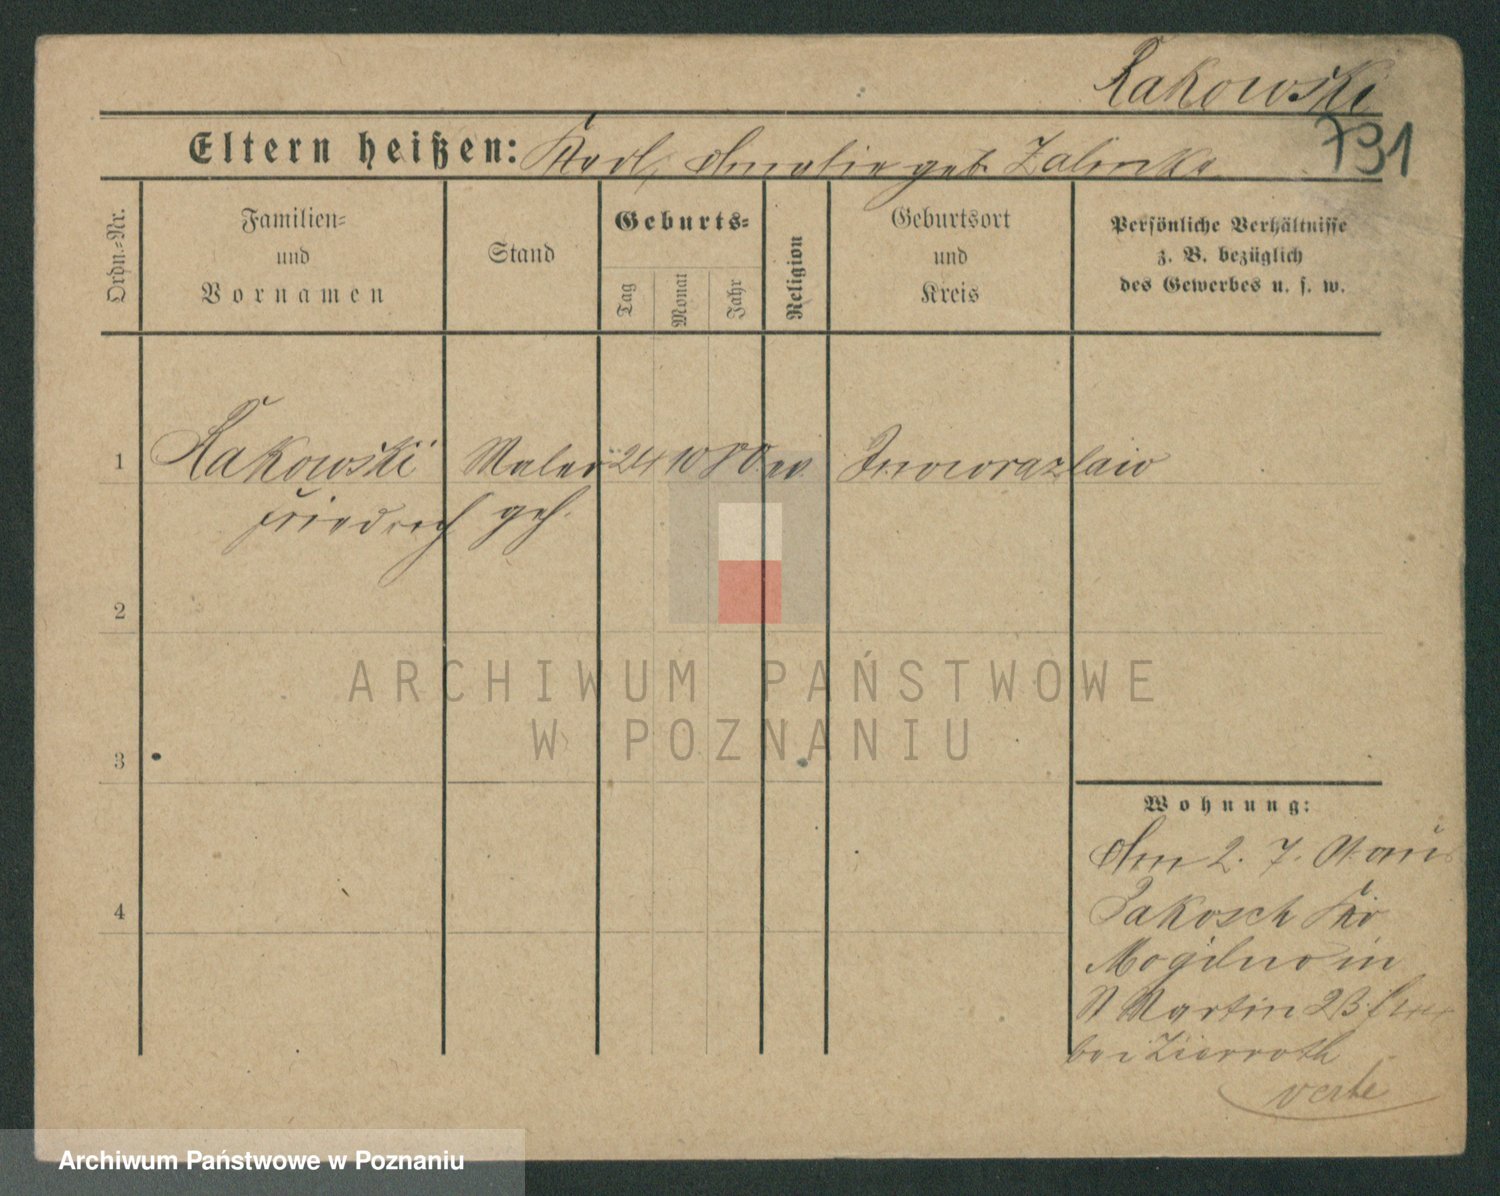 Rakowski
791
Eltern heißen: Karl, Amalie geb. Zalinka
Ordn.-Nr.
Familien-
und
Vornamen
Stand
Geburts-
Tag
Monat
Jahr
Religion
Geburtsort
und
Kreis
Persönliche Verhältnisse
z. B. bezüglich
des Gewerbes u. s. w.
1 Rakowski Maler 24 10 80 ev. Inowrazlaw
Friedrich geh.
2
3
4
ARCHIWUM PAŃSTWOWE
W POZNANIU
Wohnung:
Am 2. 7. aus
Pakosch Kr
Mogilno in
St Martin 23
bei Zierroth
verte
Archiwum Państwowe w Poznaniu